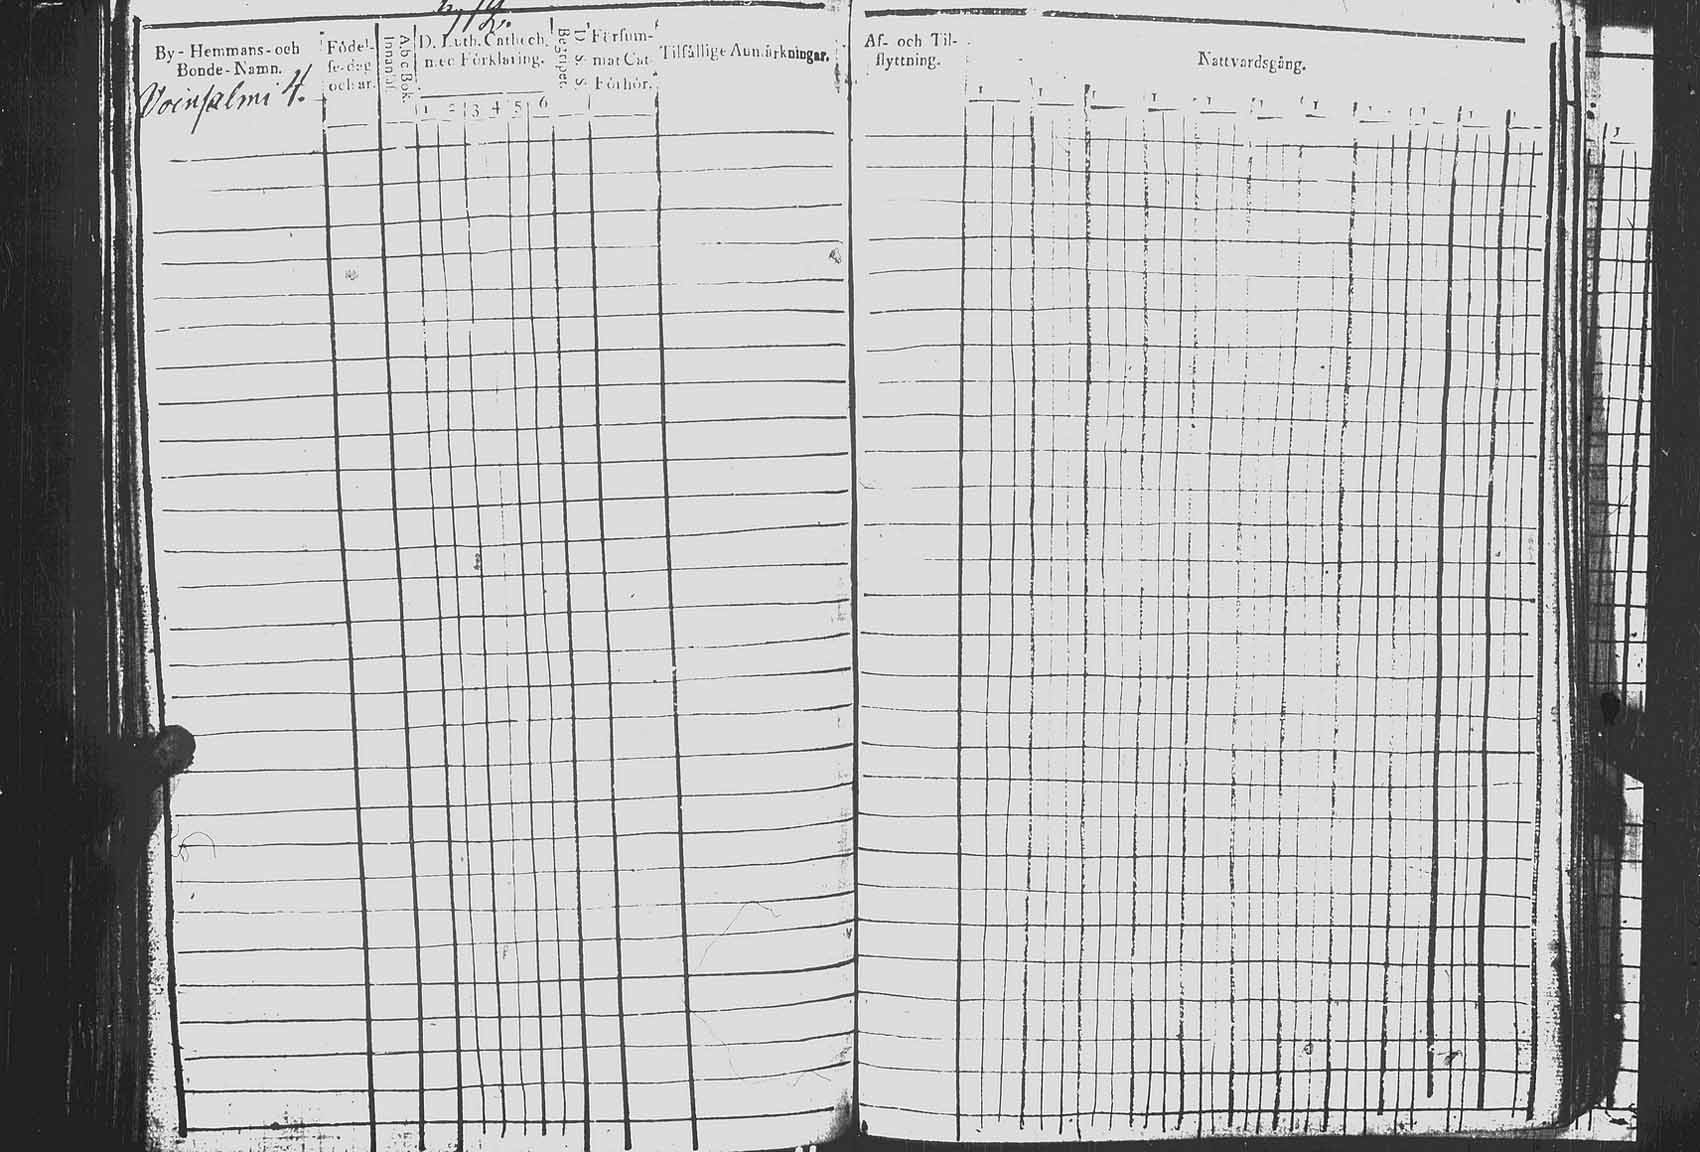 By- Hemmans- och
Bonde-Namn.
Voinsalmi 4.
Födel-
se-dag
och år.
Innan läs.
A.b.c Bok.
D. Luth. Cathech.
med Förklaring.
1 2 3 4 5 6
Begripet.
D. S. S.
Försum-
mat Cat-
Förhör.
Tilfällige Anmärkningar.
Af- och Til-
flyttning.
Nattvardsgång.
1 1 1 1 1 1 1 1 1 1 1